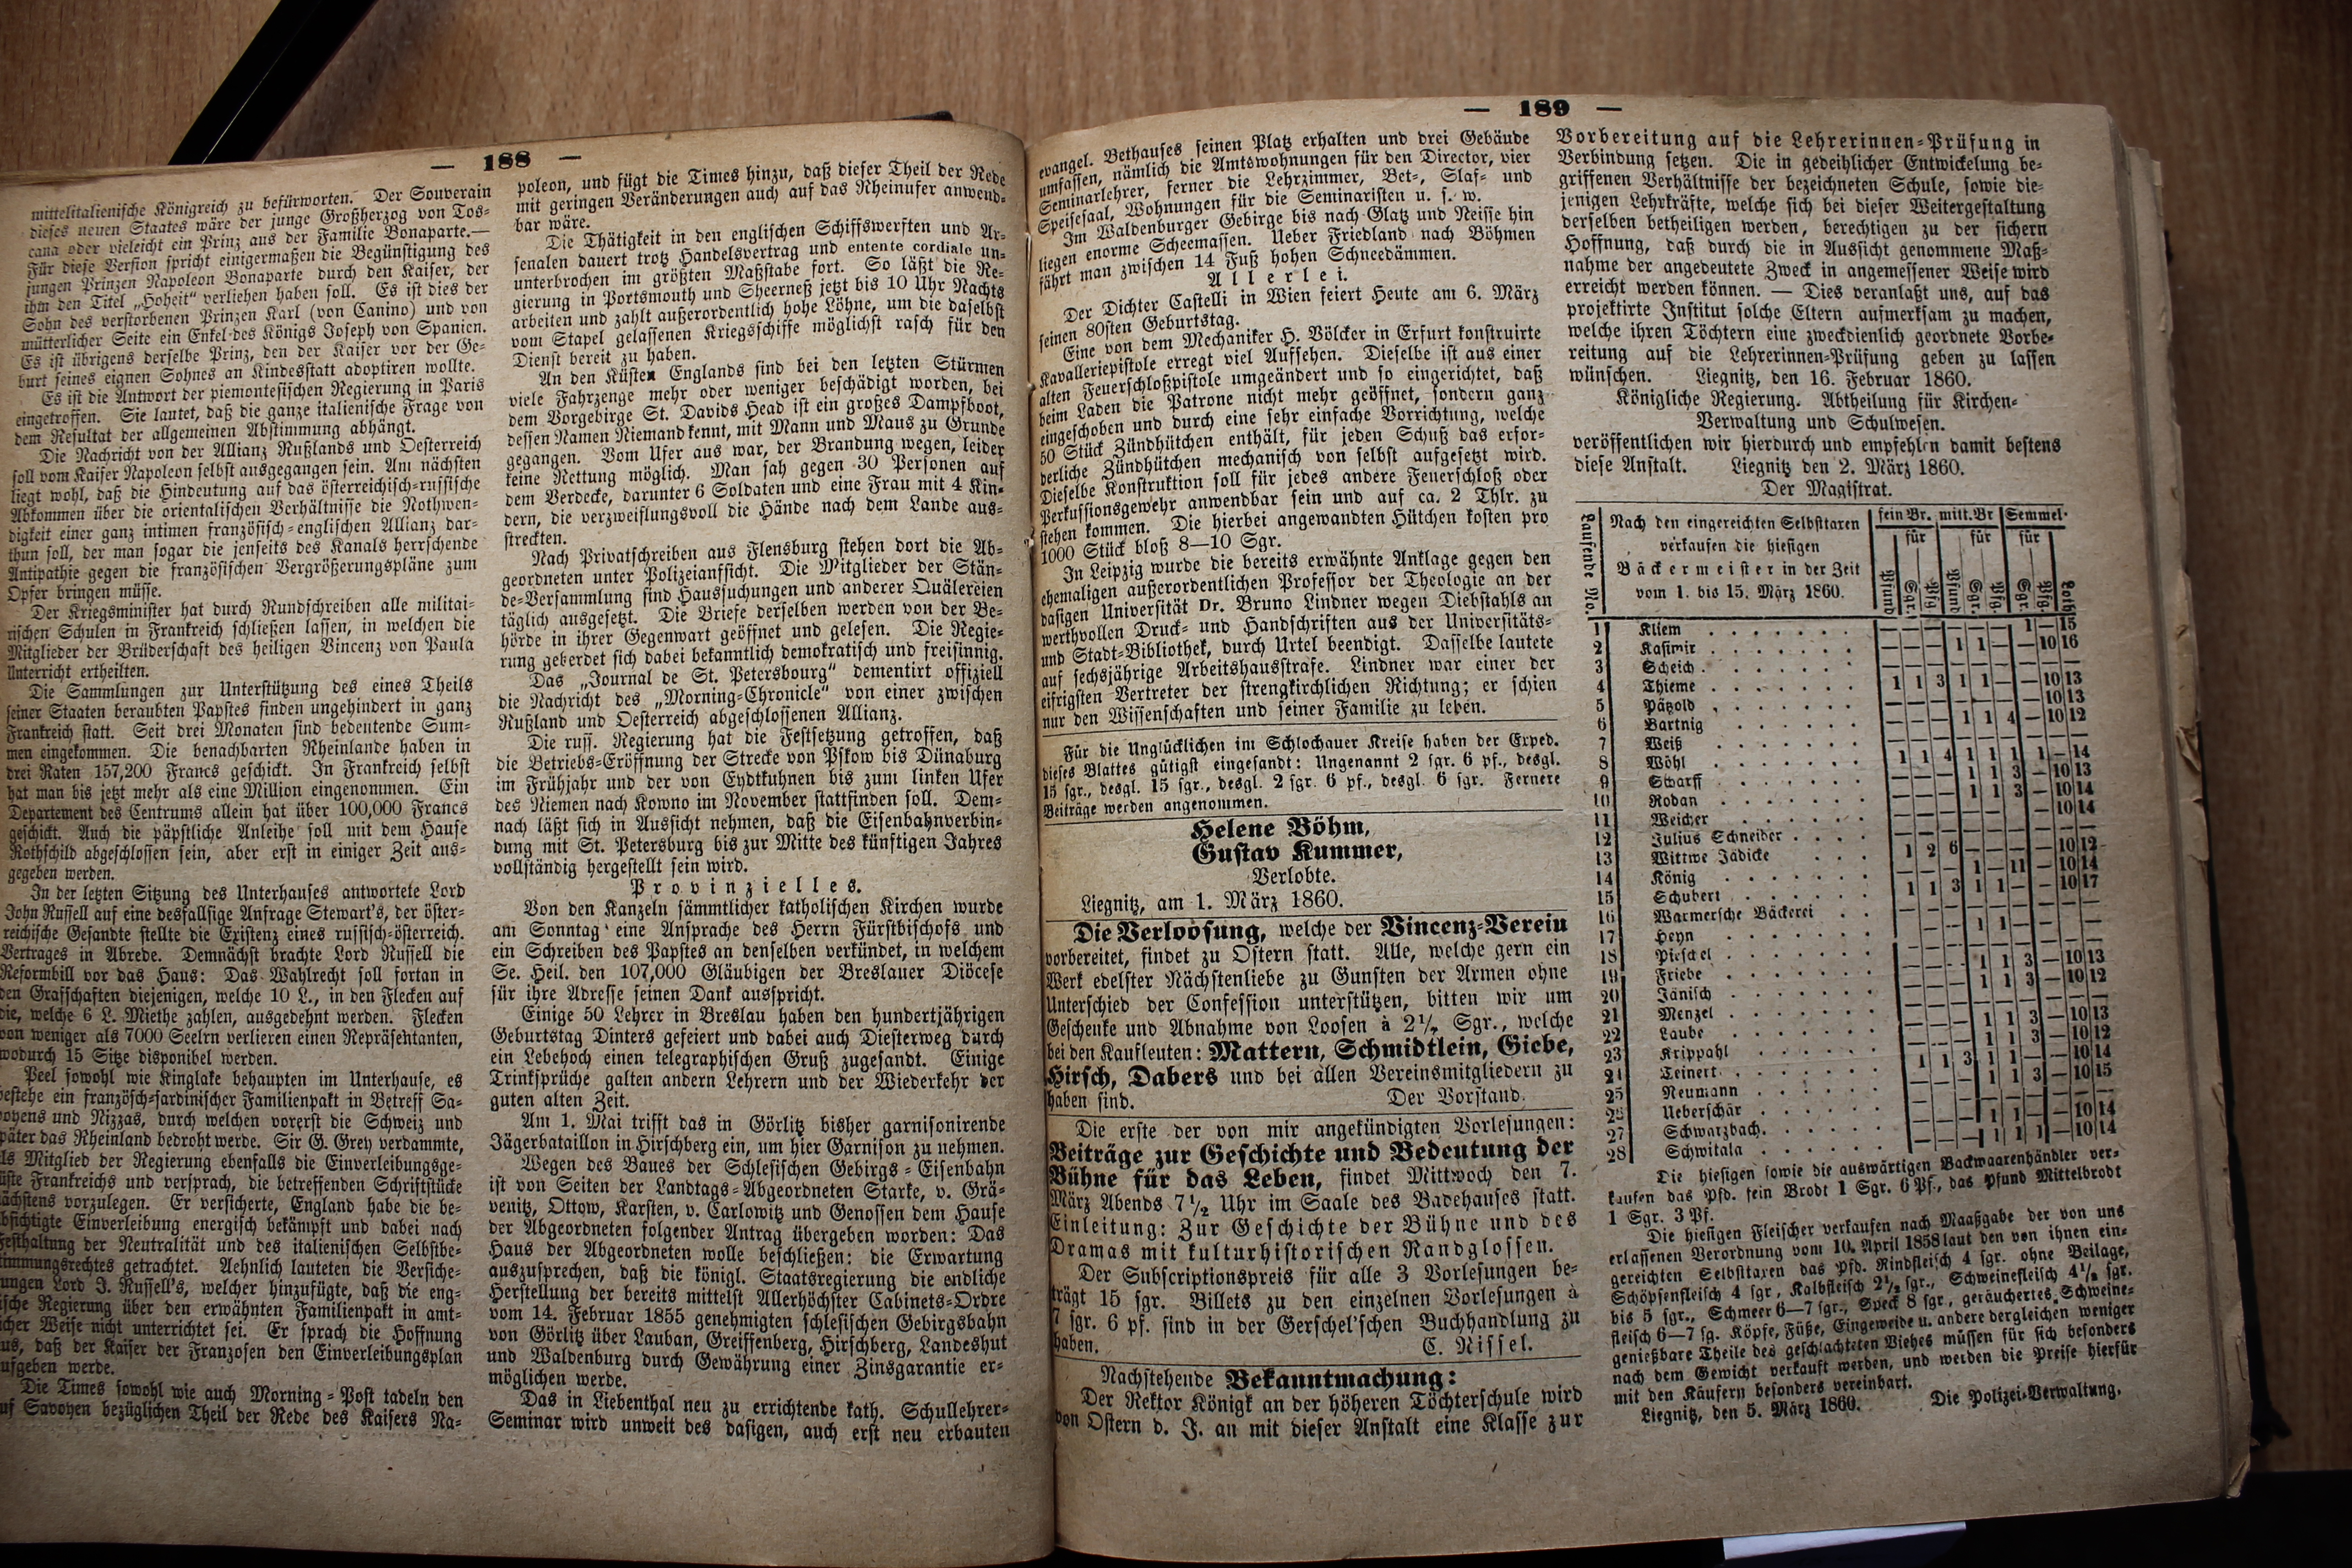 — 188 —
mittelitalienische Königreich zu befürworten. Der Souverain
dieses neuen Staates wäre der junge Großherzog von Tos-
cana oder vieleicht ein Prinz aus der Familie Bonaparte.—
Für diese Version spricht einigermaßen die Begünstigung des
jungen Prinzen Napoleon Bonaparte durch den Kaiser, der
ihm den Titel „Hoheit“ verliehen haben soll. Es ist dies der
Sohn des verstorbenen Prinzen Karl (von Canino) und von
mütterlicher Seite ein Enkel des Königs Joseph von Spanien.
Es ist übrigens derselbe Prinz, den der Kaiser vor der Ge-
burt seines eignen Sohnes an Kindesstatt adoptiren wollte.
Es ist die Antwort der piemontesischen Regierung in Paris
eingetroffen. Sie lautet, daß die ganze italienische Frage von
dem Resultat der allgemeinen Abstimmung abhängt.
Die Nachricht von der Allianz Rußlands und Oesterreich
soll vom Kaiser Napoleon selbst ausgegangen sein. Am nächsten
liegt wohl, daß die Hindeutung auf das österreichisch-russische
Abkommen über die orientalischen Verhältnisse die Nothwen-
digkeit einer ganz intimen französisch-englischen Allianz dar-
thun soll, der man sogar die jenseits des Kanals herrschende
Antipathie gegen die französischen Vergrößerungspläne zum
Opfer bringen müsse.
Der Kriegsminister hat durch Rundschreiben alle militai-
rischen Schulen in Frankreich schließen lassen, in welchen die
Mitglieder der Brüderschaft des heiligen Vincenz von Paula
Unterricht ertheilten.
Die Sammlungen zur Unterstützung des eines Theils
seiner Staaten beraubten Papstes finden ungehindert in ganz
Frankreich statt. Seit drei Monaten sind bedeutende Sum-
men eingekommen. Die benachbarten Rheinlande haben in
drei Raten 157,200 Francs geschickt. In Frankreich selbst
hat man bis jetzt mehr als eine Million eingenommen. Ein
Departement des Centrums allein hat über 100,000 Francs
geschickt. Auch die päpstliche Anleihe soll mit dem Hause
Rothschild abgeschlossen sein, aber erst in einiger Zeit aus-
gegeben werden.
In der letzten Sitzung des Unterhauses antwortete Lord
John Russell auf eine desfallsige Anfrage Stewart's, der öster-
reichische Gesandte stellte die Existenz eines russisch-österreich.
Vertrages in Abrede. Demnächst brachte Lord Russell die
Reformbill vor das Haus: Das Wahlrecht soll fortan in
den Grafschaften diejenigen, welche 10 L., in den Flecken auf
die, welche 6 L. Miethe zahlen, ausgedehnt werden. Flecken
von weniger als 7000 Seelrn verlieren einen Repräsentanten,
wodurch 15 Sitze disponibel werden.
Peel sowohl wie Kinglake behaupten im Unterhause, es
bestehe ein französch-sardinischer Familienpakt in Betreff Sa-
voyens und Nizzas, durch welchen vorerst die Schweiz und
später das Rheinland bedroht werde. Sir G. Grey verdammte,
als Mitglied der Regierung ebenfalls die Einverleibungsge-
lüste Frankreichs und versprach, die betreffenden Schriftstücke
nächstens vorzulegen. Er versicherte, England habe die be-
absichtigte Einverleibung energisch bekämpft und dabei nach
Festhaltung der Neutralität und des italienischen Selbstbe-
stimmungsrechtes getrachtet. Aehnlich lauteten die Versiche-
rungen Lord J. Russell's, welcher hinzufügte, daß die eng-
lische Regierung über den erwähnten Familienpakt in amt-
licher Weise nicht unterrichtet sei. Er sprach die Hoffnung
aus, daß der Kaiser der Franzosen den Einverleibungsplan
aufgeben werde.
Die Times sowohl wie auch Morning-Post tadeln den
auf Savoyen bezüglichen Theil der Rede des Kaisers Na-
poleon, und fügt die Times hinzu, daß dieser Theil der Rede
mit geringen Veränderungen auch auf das Rheinufer anwend-
bar wäre.
Die Thätigkeit in den englischen Schiffswerften und Ar-
senalen dauert trotz Handelsvertrag und entente cordiale un-
unterbrochen im größten Maßstabe fort. So läßt die Re-
gierung in Portsmouth und Sheerneß jetzt bis 10 Uhr Nachts
arbeiten und zahlt außerordentlich hohe Löhne, um die daselbst
vom Stapel gelassenen Kriegsschiffe möglichst rasch für den
Dienst bereit zu haben.
An den Küsten Englands sind bei den letzten Stürmen
viele Fahrzenge mehr oder weniger beschädigt worden, bei
dem Vorgebirge St. Davids Head ist ein großes Dampfboot,
dessen Namen Niemand kennt, mit Mann und Maus zu Grunde
gegangen. Vom Ufer aus war, der Brandung wegen, leider
keine Rettung möglich. Man sah gegen 30 Personen auf
dem Verdecke, darunter 6 Soldaten und eine Frau mit 4 Kin-
dern, die verzweiflungsvoll die Hände nach dem Lande aus-
streckten.
Nach Privatschreiben aus Flensburg stehen dort die Ab-
geordneten unter Polizeiansicht. Die Mitglieder der Stän-
de-Versammlung sind Haussuchungen und anderer Quälereien
täglich ausgesetzt. Die Briefe derselben werden von der Be-
hörde in ihrer Gegenwart geöffnet und gelesen. Die Regie-
rung geberdet sich dabei bekanntlich demokratisch und freisinnig.
Das „Journal de St. Petersbourg“ dementirt offiziell
die Nachricht des „Morning-Chronicle“ von einer zwischen
Rußland und Oesterreich abgeschlossenen Allianz.
Die russ. Regierung hat die Festsetzung getroffen, daß
die Betriebs-Eröffnung der Strecke von Pskow bis Dünaburg
im Frühjahr und der von Eydtkuhnen bis zum linken Ufer
des Niemen nach Kowno im November stattfinden soll. Dem-
nach läßt sich in Aussicht nehmen, daß die Eisenbahnverbin-
dung mit St. Petersburg bis zur Mitte des künftigen Jahres
vollständig hergestellt sein wird.
Provinzielles.
Von den Kanzeln sämmtlicher katholischen Kirchen wurde
am Sonntag eine Ansprache des Herrn Fürstbischofs und
ein Schreiben des Papstes an denselben verkündet, in welchem
Se. Heil. den 107,000 Gläubigen der Breslauer Diöcese
für ihre Adresse seinen Dank ausspricht.
Einige 50 Lehrer in Breslau haben den hundertjährigen
Geburtstag Dinters gefeiert und dabei auch Diesterweg durch
ein Lebehoch einen telegraphischen Gruß zugesandt. Einige
Trinksprüche galten andern Lehrern und der Wiederkehr der
guten alten Zeit.
Am 1. Mai trifft das in Görlitz bisher garnisonirende
Jägerbataillon in Hirschberg ein, um hier Garnison zu nehmen.
Wegen des Baues der Schlesischen Gebirgs-Eisenbahn
ist von Seiten der Landtags-Abgeordneten Starke, v. Grä-
venitz, Ottow, Karsten, v. Carlowitz und Genossen dem Hause
der Abgeordneten folgender Antrag übergeben worden: Das
Haus der Abgeordneten wolle beschließen: die Erwartung
auszusprechen, daß die königl. Staatsregierung die endliche
Herstellung der bereits mittelst Allerhöchster Cabinets-Ordre
vom 14. Februar 1855 genehmigten schlesischen Gebirgsbahn
von Görlitz über Lauban, Greiffenberg, Hirschberg, Landeshut
und Waldenburg durch Gewährung einer Zinsgarantie er-
möglichen werde.
Das in Liebenthal neu zu errichtende kath. Schullehrer-
Seminar wird unweit des dasigen, auch erst neu erbauten
— 189 —
evangel. Bethauses seinen Platz erhalten und drei Gebäude
umfassen, nämlich die Amtswohnungen für den Director, vier
Seminarlehrer, ferner die Lehrzimmer, Bet-, Slaf- und
Speisesaal, Wohnungen für die Seminaristen u. s. w.
Im Waldenburger Gebirge bis nach Glatz und Neisse hin
liegen enorme Scheemassen. Ueber Friedland nach Böhmen
fährt man zwischen 14 Fuß hohen Schneedämmen.
Allerlei.
Der Dichter Castelli in Wien feiert Heute am 6. März
seinen 80sten Geburtstag.
Eine von dem Mechaniker H. Völcker in Erfurt konstruirte
Kavalleriepistole erregt viel Aufsehen. Dieselbe ist aus einer
alten Feuerschloßpistole umgeändert und so eingerichtet, daß
beim Laden die Patrone nicht mehr geöffnet, sondern ganz
eingeschoben und durch eine sehr einfache Vorrichtung, welche
50 Stück Zündhütchen enthält, für jeden Schuß das erfor-
derliche Zündhütchen mechanisch von selbst aufgesetzt wird.
Dieselbe Konstruktion soll für jedes andere Feuerschloß oder
Perkussionsgewehr anwendbar sein und auf ca. 2 Thlr. zu
stehen kommen. Die hierbei angewandten Hütchen kosten pro
1000 Stück bloß 8—10 Sgr.
In Leipzig wurde die bereits erwähnte Anklage gegen den
ehemaligen außerordentlichen Professor der Theologie an der
dasigen Universität Dr. Bruno Lindner wegen Diebstahls an
werthvollen Druck- und Handschriften aus der Universitäts-
und Stadt-Bibliothek, durch Urtel beendigt. Dasselbe lautete
auf sechsjährige Arbeitshausstrafe. Lindner war einer der
eifrigsten Vertreter der strengkirchlichen Richtung; er schien
nur den Wissenschaften und seiner Familie zu leben.
Für die Unglücklichen im Schlochauer Kreise haben der Exped.
dieses Blattes gütigst eingesandt: Ungenannt 2 sgr. 6 pf., desgl.
15 sgr., desgl. 15 sgr., desgl. 2 sgr. 6 pf., desgl. 6 sgr. Fernere
Beiträge werden angenommen.
Helene Böhm,
Gustav Kummer,
Verlobte.
Liegnitz, am 1. März 1860.
Die Verloosung, welche der Vincenz-Verein
vorbereitet, findet zu Ostern statt. Alle, welche gern ein
Werk edelster Nächstenliebe zu Gunsten der Armen ohne
Unterschied der Confession unterstützen, bitten wir um
Geschenke und Abnahme von Loosen à 2½ Sgr., welche
bei den Kaufleuten: Mattern, Schmidtlein, Giebe,
Hirsch, Dabers und bei allen Vereinsmitgliedern zu
haben sind. Der Vorstand.
Die erste der von mir angekündigten Vorlesungen:
Beiträge zur Geschichte und Bedeutung der
Bühne für das Leben, findet Mittwoch den 7.
März Abends 7½ Uhr im Saale des Badehauses statt.
Einleitung: Zur Geschichte der Bühne und des
Dramas mit kulturhistorischen Randglossen.
Der Subscriptionspreis für alle 3 Vorlesungen be-
trägt 15 sgr. Billets zu den einzelnen Vorlesungen à
7 sgr. 6 pf. sind in der Gerschel'schen Buchhandlung zu
haben. C. Nissel.
Nachstehende Bekanntmachung:
Der Rektor Königk an der höheren Töchterschule wird
von Ostern d. J. an mit dieser Anstalt eine Klasse zur
Vorbereitung auf die Lehrerinnen-Prüfung in
Verbindung setzen. Die in gedeihlicher Entwickelung be-
griffenen Verhältnisse der bezeichneten Schule, sowie die-
jenigen Lehrkräfte, welche sich bei dieser Weitergestaltung
derselben betheiligen werden, berechtigen zu der sichern
Hoffnung, daß durch die in Aussicht genommene Maß-
nahme der angedeutete Zweck in angemessener Weise wird
erreicht werden können. — Dies veranlaßt uns, auf das
projektirte Institut solche Eltern aufmerksam zu machen,
welche ihren Töchtern eine zweckdienlich geordnete Vorbe-
reitung auf die Lehrerinnen-Prüfung geben zu lassen
wünschen. Liegnitz, den 16. Februar 1860.
Königliche Regierung. Abtheilung für Kirchen-
Verwaltung und Schulwesen.
veröffentlichen wir hierdurch und empfehlen damit bestens
diese Anstalt. Liegnitz den 2. März 1860.
Der Magistrat.
Laufende No. Nach den eingereichten Selbsttaxen verkaufen die hiesigen Bäckermeister in der Zeit vom 1. bis 15. März 1860.
fein Br. mitt. Br Semmel.
für für für
Pfund Sgr. Pfg Pfund Sgr. Pfg Sgr. Pfg. Loth
1 Kliem — — — — — — 1 — 15
2 Kasimir — — — 1 1 — — 10 16
3 Scheich — — — — — — — — —
4 Thieme 1 1 3 1 1 — — 10 13
5 Pätzold — — — — — — — 10 13
6 Bartnig — — — 1 1 4 — 10 12
7 Weiß — — — — — — — — —
8 Wöhl 1 1 4 1 1 1 1 — 14
9 Scharff — — — 1 1 3 — 10 13
10 Rodan — — — 1 1 3 — 10 14
11 Weicher — — — — — — — 10 14
12 Julius Schneider — — — — — — — — —
13 Wittwe Jädicke 1 2 6 — — — — 10 12
14 König — — — 1 — 11 — 10 14
15 Schubert 1 1 3 1 1 — — 10 17
16 Warmersche Bäckerei — — — — — — — — —
17 Heyn — — — 1 1 — — — —
18 Pieschel — — — — — — — — —
19 Friebe — — — 1 1 3 — 10 13
20 Jänisch — — — 1 1 3 — 10 12
21 Menzel — — — — — — — — —
22 Laube — — — 1 1 3 — 10 13
23 Krippahl — — — 1 1 3 — 10 12
24 Teinert 1 1 3 1 1 — — 10 14
25 Neumann — — — 1 1 3 — 10 15
26 Ueberschär — — — — — — — — —
27 Schwarzbach — — — 1 1 — — 10 14
28 Schwitala — — — 1 1 1 — 10 14
Die hiesigen sowie die auswärtigen Backwaarenhändler ver-
kaufen das Pfd. fein Brodt 1 Sgr. 6 Pf., das Pfund Mittelbrodt
1 Sgr. 3 Pf.
Die hiesigen Fleischer verkaufen nach Maaßgabe der von uns
erlassenen Verordnung vom 10. April 1858 laut den von ihnen ein-
gereichten Selbsttaxen das Pfd. Rindfleisch 4 sgr. ohne Beilage,
Schöpsenfleisch 4 sgr, Kalbfleisch 2½ sgr., Schweinefleisch 4½ sgr.
bis 5 sgr., Schmeer 6—7 sgr., Speck 8 sgr., geräuchertes Schweine-
fleisch 6—7 sg. Köpfe, Füße, Eingeweide u. andere dergleichen weniger
genießbare Theile des geschlachteten Viehes müssen für sich besonders
nach dem Gewicht verkauft werden, und werden die Preise hierfür
mit den Käufern besonders vereinbart.
Liegnitz, den 5. März 1860. Die Polizei-Verwaltung.